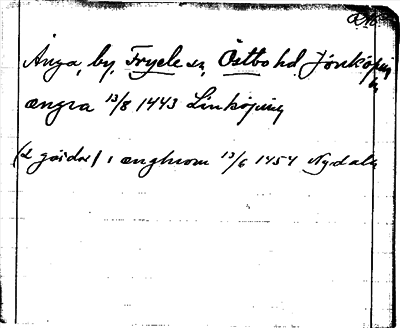 Ånga, by, Fryele sn, Östbo hd. Jönköping
ængra 13/8 1443 Linköping
(2 gårdar) i ænghrom 13/6 1454 Nydala